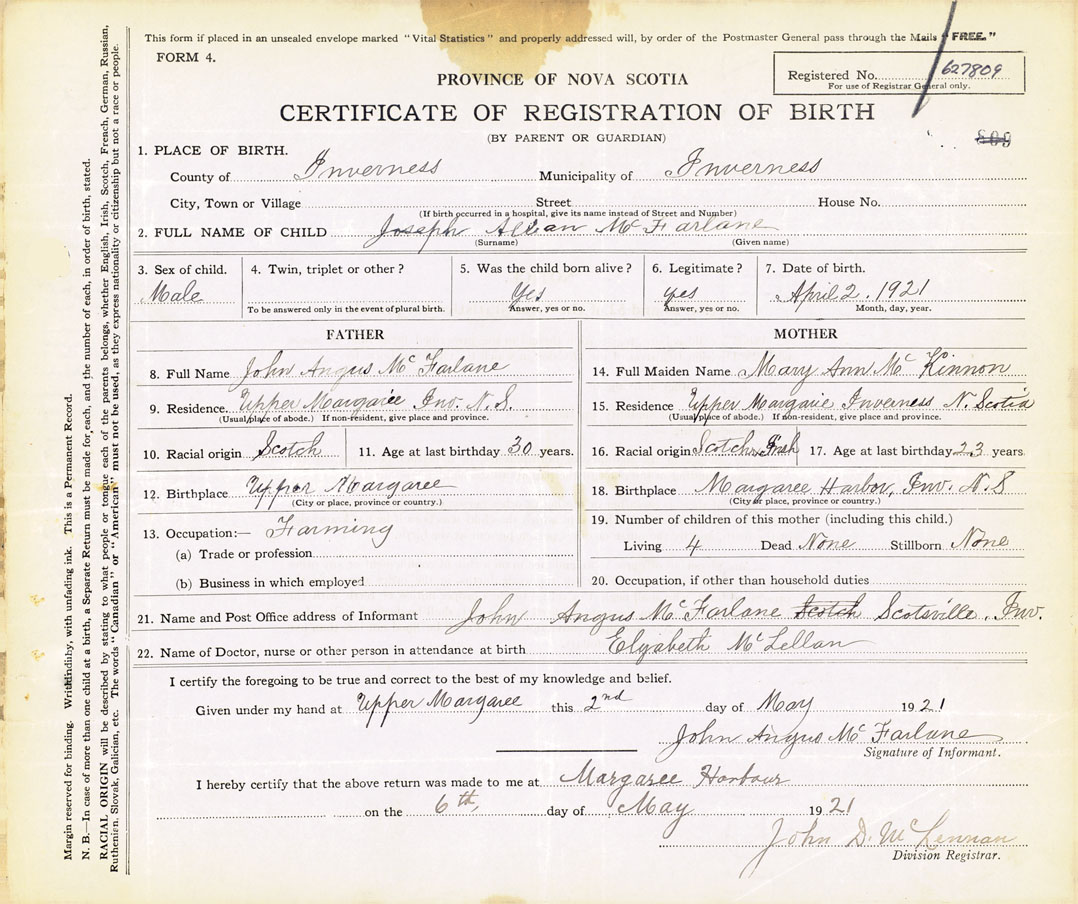 This form if placed in an unsealed envelope marked "Vital Statistics" and properly addressed will, by order of the Postmaster General pass through the Mails "FREE."
FORM 4.
Registered No. 627809
For use of Registrar General only.
PROVINCE OF NOVA SCOTIA
CERTIFICATE OF REGISTRATION OF BIRTH
(BY PARENT OR GUARDIAN)
809
1. PLACE OF BIRTH.
County of Inverness Municipality of Inverness
City, Town or Village Street House No.
(If birth occurred in a hospital, give its name instead of Street and Number)
2. FULL NAME OF CHILD Joseph Allan McFarlane
(Surname) (Given name)
3. Sex of child. 4. Twin, triplet or other? 5. Was the child born alive? 6. Legitimate? 7. Date of birth.
Male Yes yes April 2. 1921
To be answered only in the event of plural birth. Answer, yes or no. Answer, yes or no. Month, day, year.
FATHER
8. Full Name John Angus McFarlane
9. Residence. Upper Margaree Inv. N.S.
(Usual place of abode.) If non-resident, give place and province.
10. Racial origin Scotch 11. Age at last birthday 30 years.
12. Birthplace Upper Margaree
(City or place, province or country.)
13. Occupation:— Farming
(a) Trade or profession
(b) Business in which employed
MOTHER
14. Full Maiden Name Mary Ann McKinnon
15. Residence Upper Margarie Inverness N. Scotia
(Usual place of abode.) If non-resident, give place and province.
16. Racial origin Scotch Irish 17. Age at last birthday 23 years
18. Birthplace Margaree Harbor, Inv. N.S
(City or place, province or country.)
19. Number of children of this mother (including this child.)
Living 4 Dead None Stillborn None
20. Occupation, if other than household duties
21. Name and Post Office address of Informant John Angus McFarlane Scotch Scotsville. Inv.
22. Name of Doctor, nurse or other person in attendance at birth Elyabeth McLellan
I certify the foregoing to be true and correct to the best of my knowledge and belief.
Given under my hand at Upper Margaree this 2nd day of May 1921
John Angus McFarlane
Signature of Informant.
I hereby certify that the above return was made to me at Margaree Harbour
on the 6th, day of May 1921
John D. McLennan
Division Registrar.
Margin reserved for binding. Write plainly, with unfading ink. This is a Permanent Record.
N. B.—In case of more than one child at a birth, a Separate Return must be made for each, and the number of each, in order of birth, stated.
RACIAL ORIGIN will be described by stating to what people or tongue each of the parents belongs, whether English, Irish, Scotch, French, German, Russian,
Ruthenian, Slovak, Galician, etc. The words "Canadian" or "American" must not be used, as they express nationality or citizenship but not a race or people.